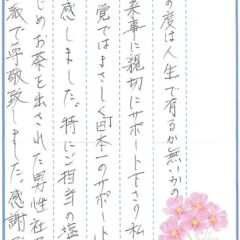 の度は人生で有るか無いかの
来事に親切にサポート下さり私
覚ではまさしく日本一のサポート
感しました。特にご担当の塩
じめお茶を出された男性社
派で尊敬致しました。感謝